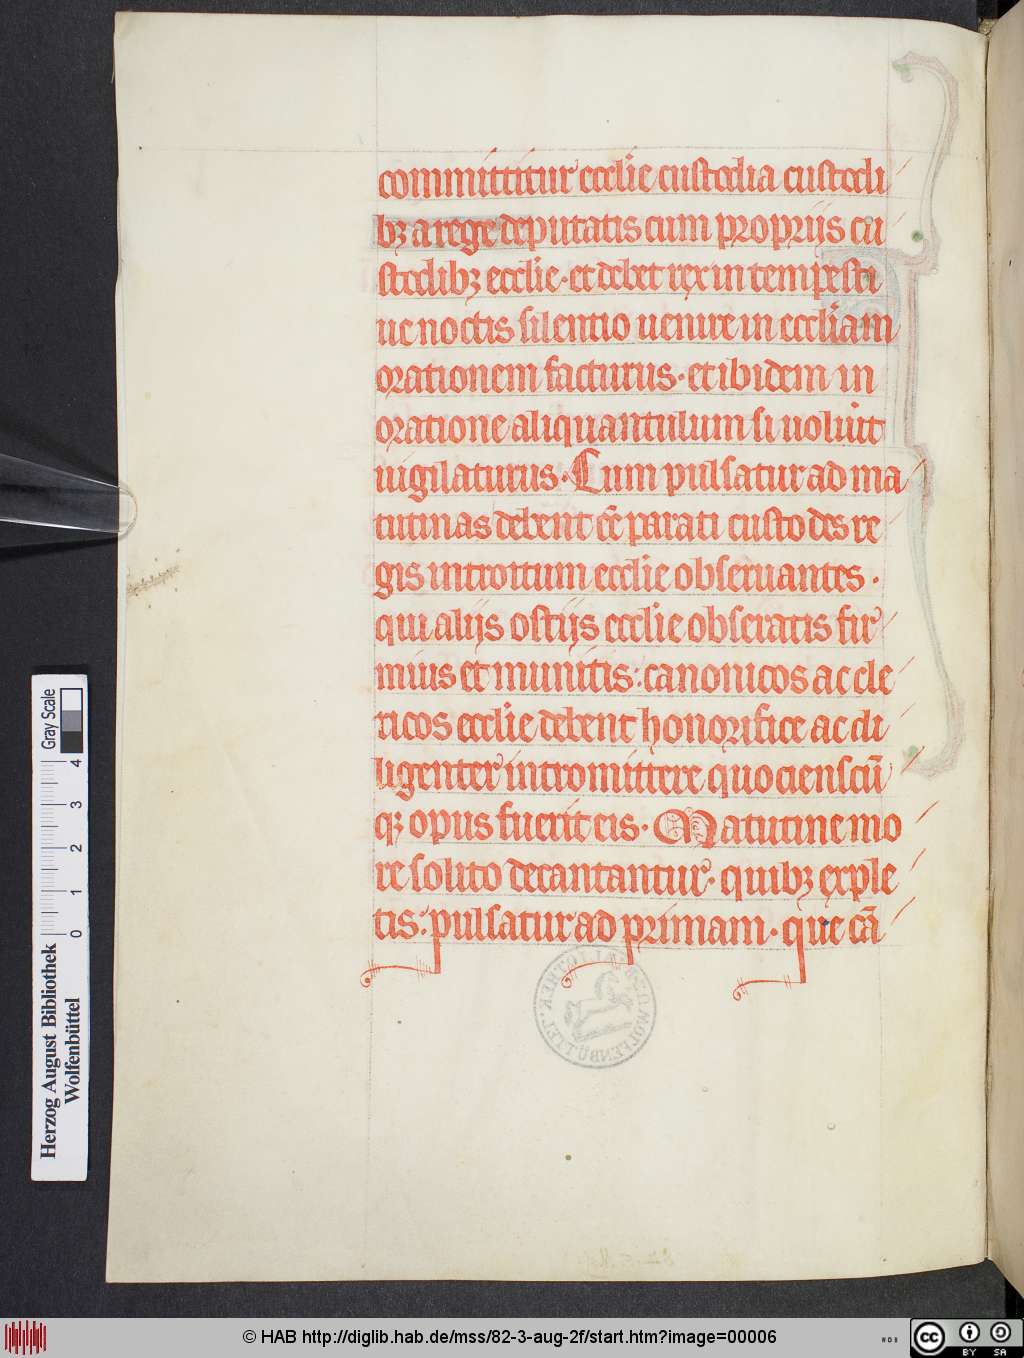 committitur ecclie custodia custodi
bꝫ a rege deputatis cum proprijs cu
stodibꝫ ecclie · et debet rex in tempesti
ue noctis silentio uenire in eccliam
orationem facturus · et ibidem in
oratione aliquantulum si uoluit
uigilaturus · Cum pulsatur ad ma
tutinas debent ee̅ parati custodes re
gis introitum ecclie obseruantes ·
qui alijs ostijs ecclie obseratis fir
mius et munitis : canonicos ac cle
ricos ecclie debent honorifice ac di
ligenter intromittere quocienscu̅
qꝫ opus fuerit eis · Matutine mo
re solito decantantur · quibꝫ exple
tis : pulsatur ad primam · que ca̅
Herzog August Bibliothek
Wolfenbüttel
0 1 2 3 4
Gray Scale
© HAB http://diglib.hab.de/mss/82-3-aug-2f/start.htm?image=00006
cc BY SA